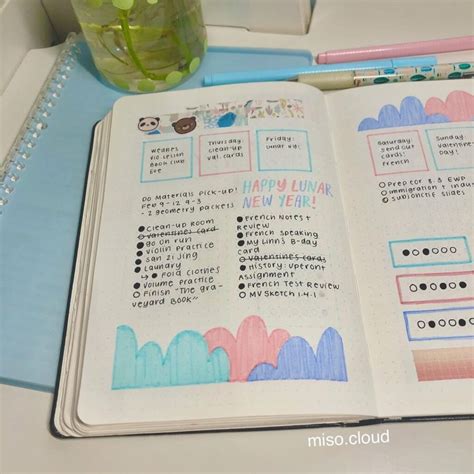 Wednes
Vio Lesson
Book club
Eve
Thursday:
clean-up
Val. cards
Friday:
Lunar
DO Materials Pick-up!
Feb 9-12 4-3
- 2 geometry packets
HAPPY LUNAR
NEW YEAR!
clean up Room
valentines card
go on run
violin practice
san zi jing
Laundry
↳ Fold clothes
volume practice
Finish "The gra-
veyard Book"
French Notes +
Review
French speaking
My Linn's B-day
card
valentines card
History: Upfront
Assignment
French Test Review
MV Sketch 1.4.1
Saturday
send out
cards!
French
Sunday:
valentine
day!
Prep for 3.3 EWP
immigration + in
subjonctif slides
miso.cloud